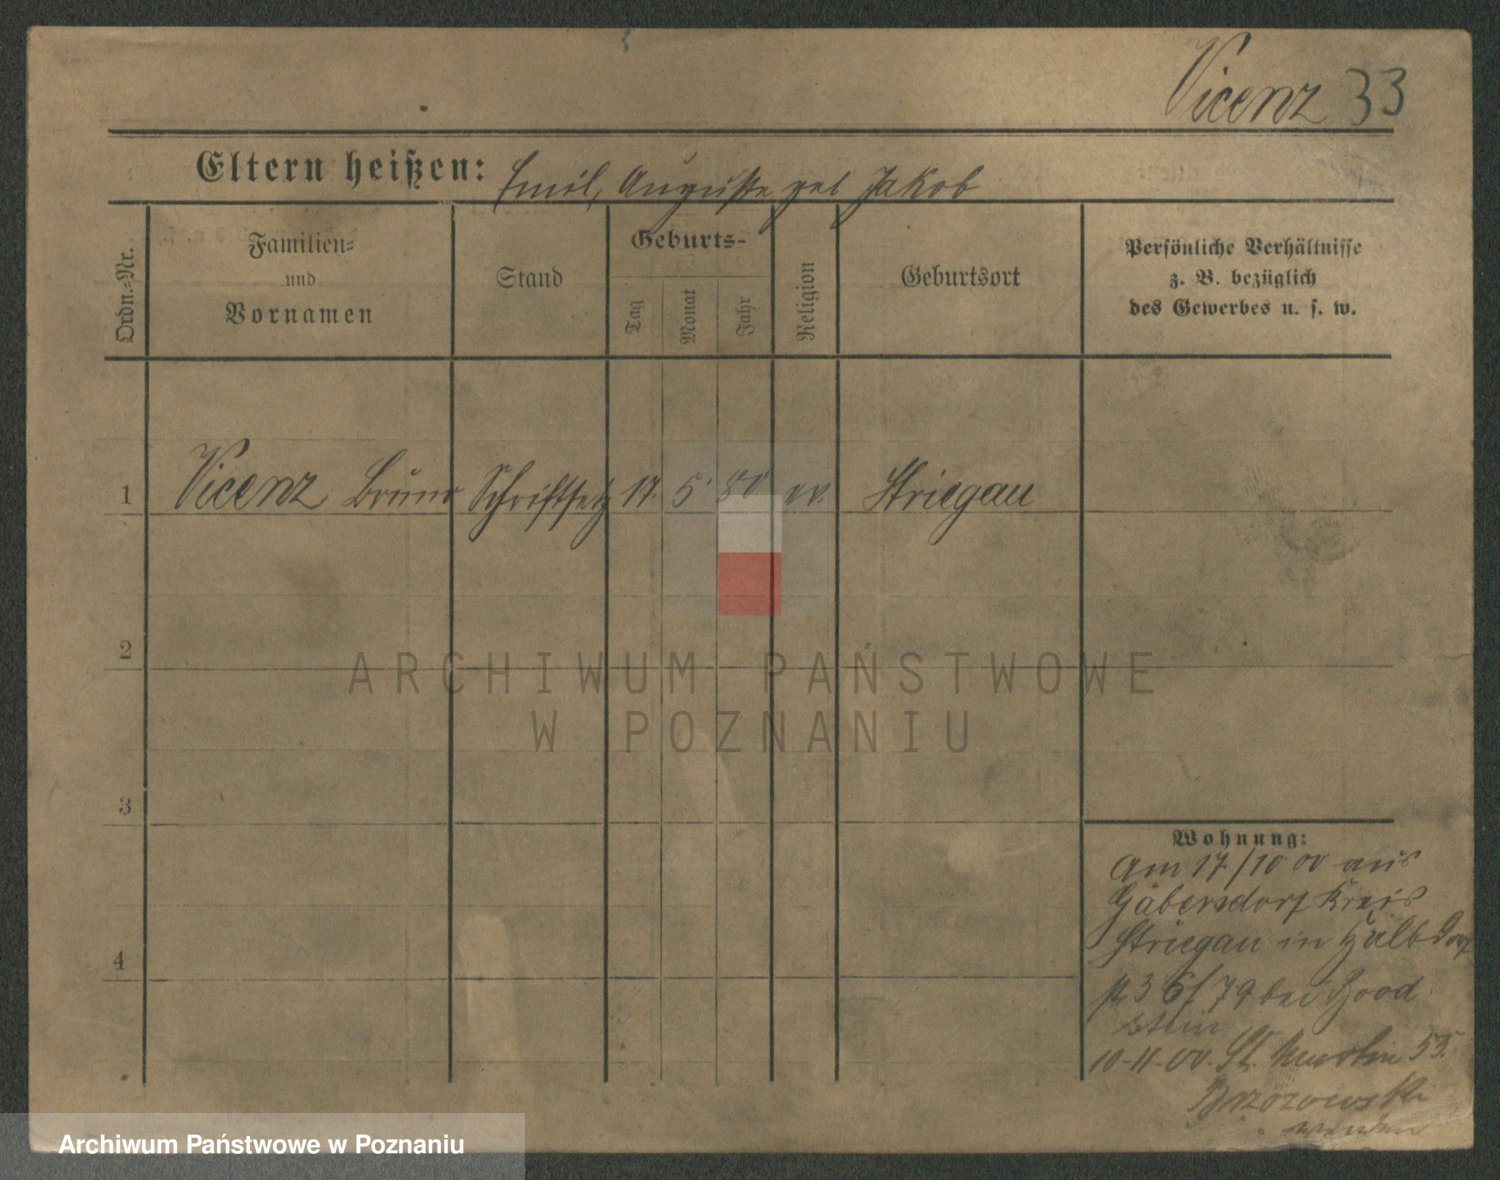 Vicenz 33
Eltern heißen: Emil, Auguste geb Jakob
Ordn.-Nr.
Familien-
und
Vornamen
Stand
Geburts-
Tag
Monat
Jahr
Religion
Geburtsort
Persönliche Verhältnisse
z. B. bezüglich
des Gewerbes u. s. w.
1 Vicenz Bruno Schriftsetz 17. 5. 80 ev. Striegau
2
ARCHIWUM PAŃSTWOWE
W POZNANIU
3
4
Wohnung:
Am 17/10 00 aus
Gäbersdorf Kreis
Striegau in Halbdorf
36/79 bei
stein
10-11-00. St. Martin 53.
Brzozowski
Archiwum Państwowe w Poznaniu